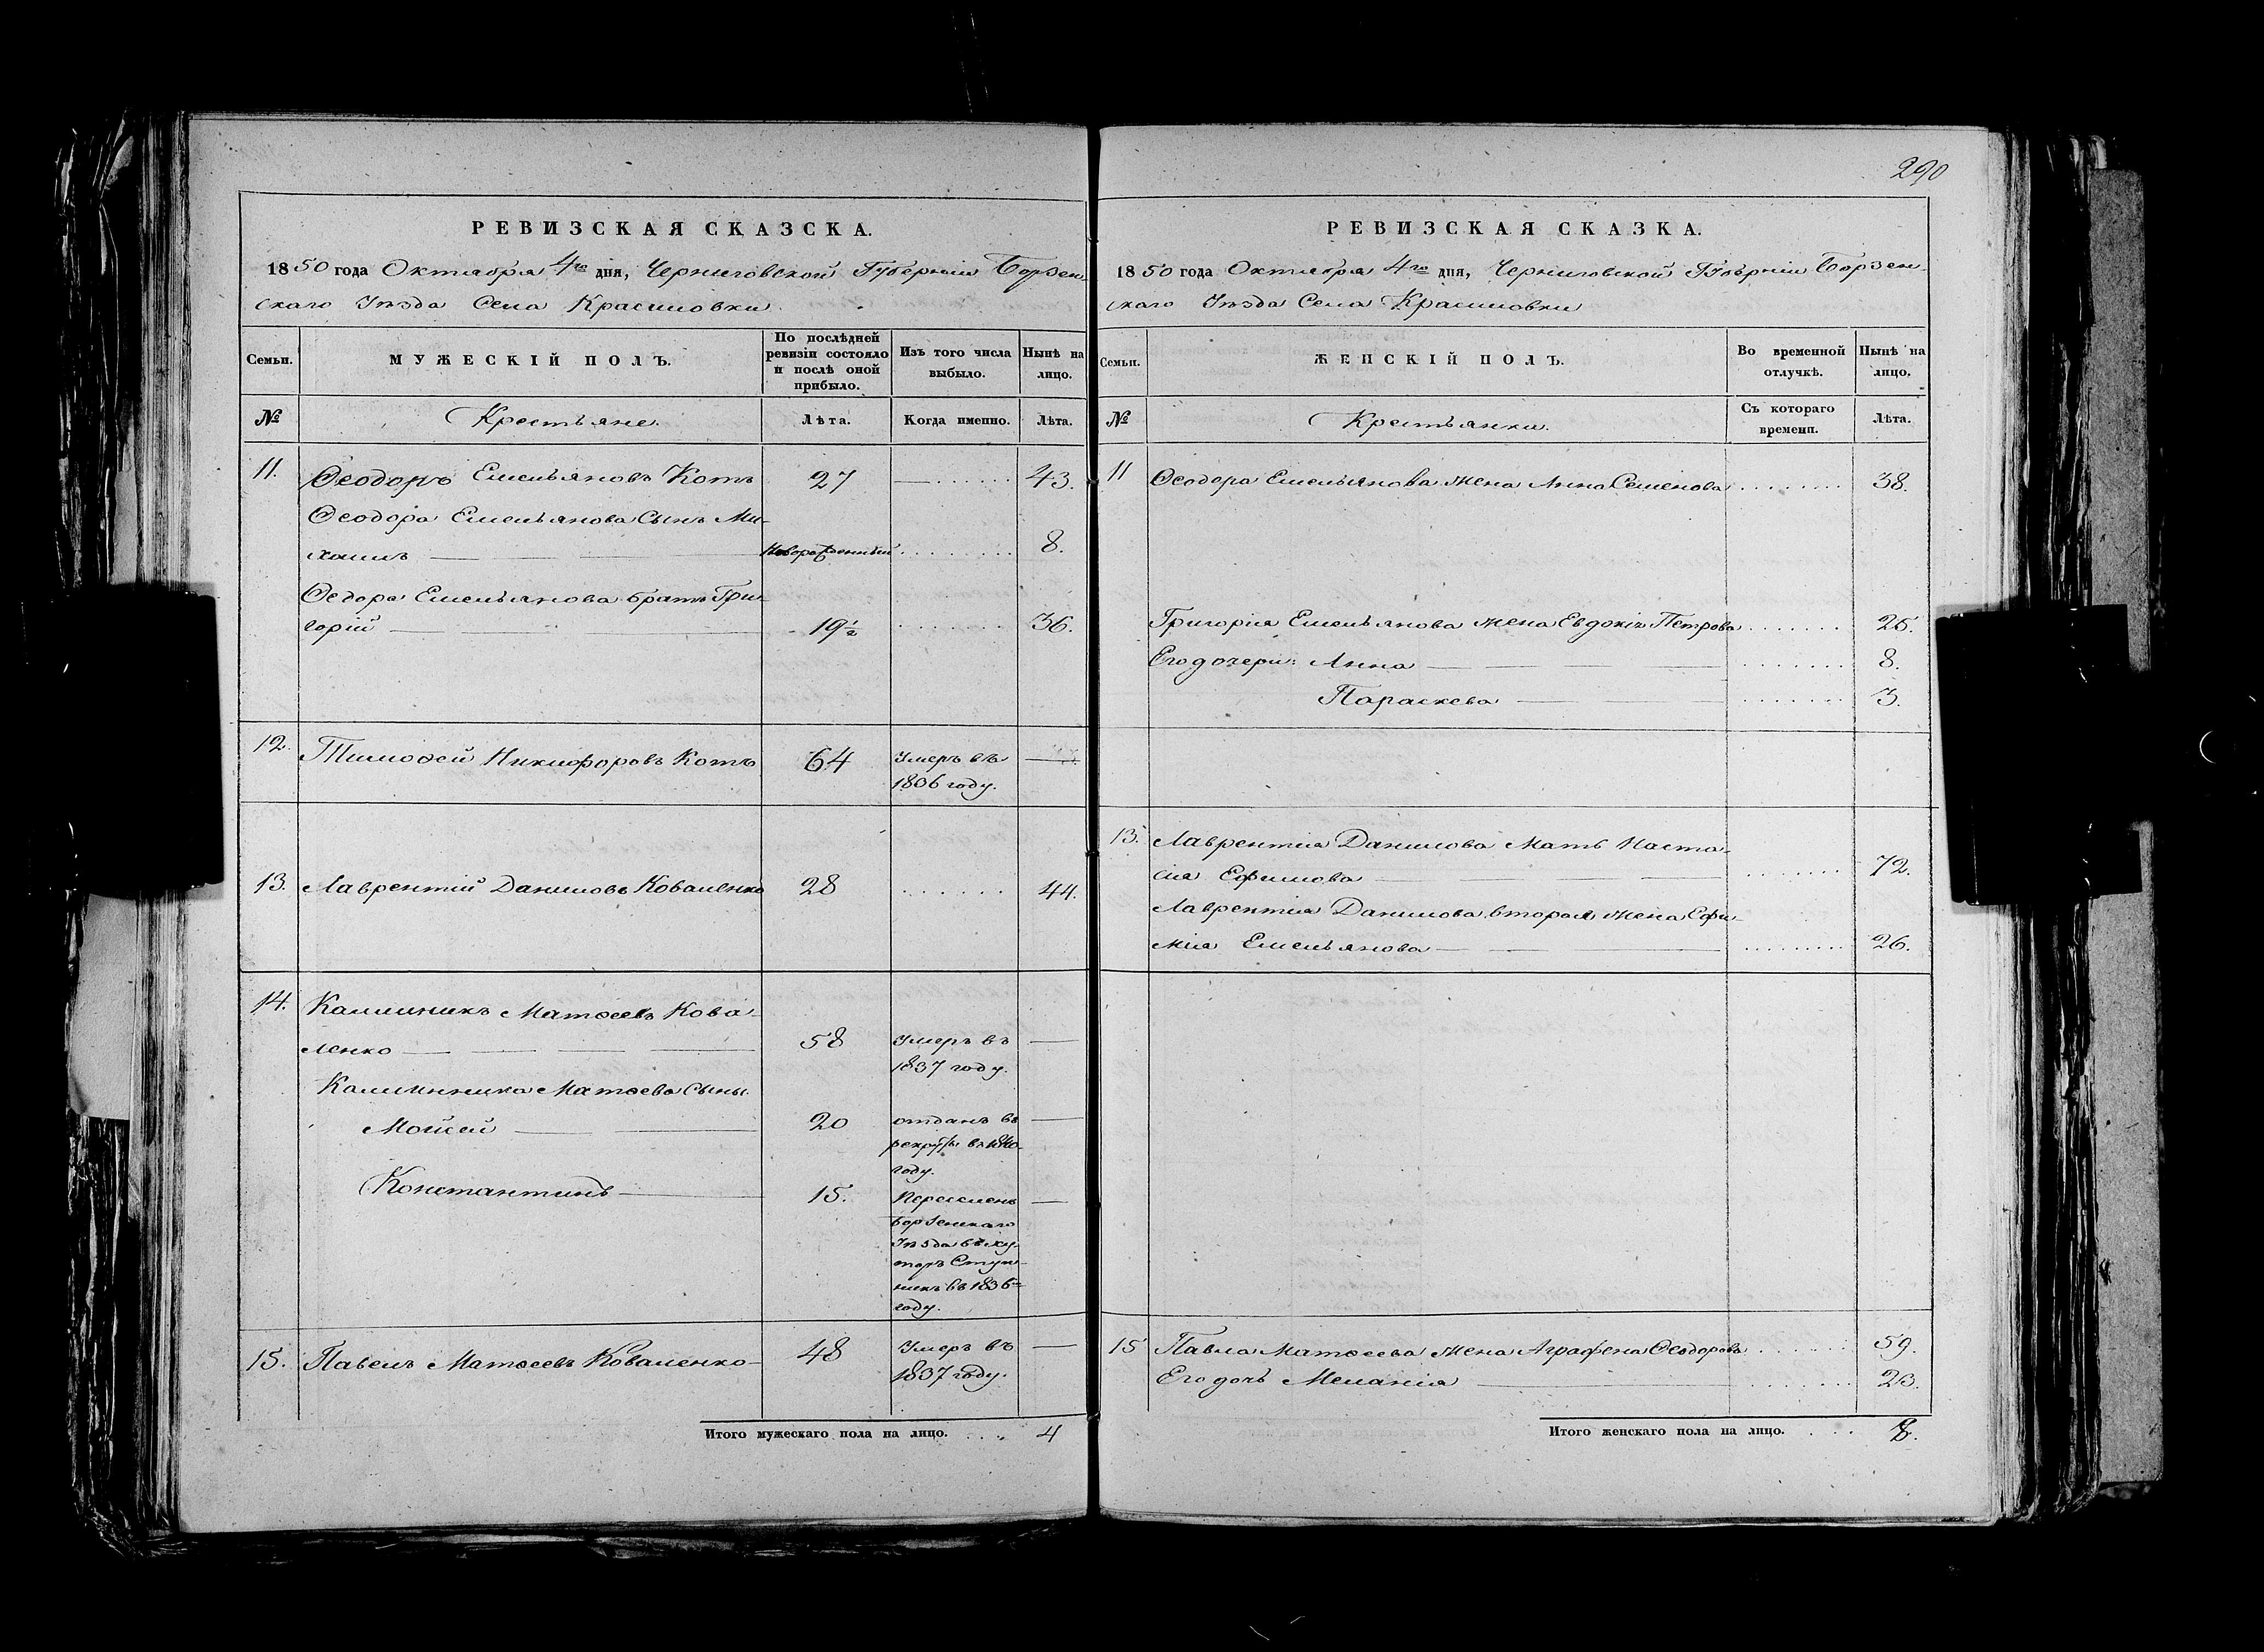 290
РЕВИЗСКАЯ СКАЗСКА.
1850 года Октября 4го дня, Черниговской Губерніи Борзен-
скаго Уѣзда Села Красиловки.
Семьи.
МУЖЕСКІЙ ПОЛЪ.
По послѣдней ревизіи состояло и послѣ оной прибыло.
Изъ того числа выбыло.
Нынѣ на лицо.
№
Крестьяне.
Лѣта.
Когда именно.
Лѣта.
11. Ѳеодоръ Емельяновъ Котъ 27 43.
Ѳеодора Емельянова Сынъ Ми-
хаилъ Новорожденный 8.
Ѳедора Емельянова братъ Гри-
горій 19½ 36.
12. Тимоѳей Никифоровъ Котъ 64 Умеръ въ
1836 году.
13. Лаврентій Даниловъ Коваленко 28 44.
14. Калинникъ Матѳеевъ Кова-
ленко 58 Умеръ въ
1837 году.
Калинника Матѳева Сыны.
Мойсей 20 отданъ въ
рекруты въ 1840
году.
Константинъ 15. Переселенъ
Борзенскаго
Уѣзда въ ху-
торъ
въ 1836
году.
15. Павелъ Матѳеевъ Коваленко 48 Умеръ въ
1837 году.
Итого мужескаго пола на лицо. 4
РЕВИЗСКАЯ СКАЗКА.
1850 года Октября 4го дня, Черниговской Губерніи Борзен-
скаго Уѣзда Села Красиловки
Семьи.
ЖЕНСКІЙ ПОЛЪ.
Во временной отлучкѣ.
Нынѣ на лицо.
№
Крестьянки.
Съ котораго времени.
Лѣта.
11 Ѳеодора Емельянова жена Анна Семенова 38.
Григорія Емельянова жена Евдокія Петрова 25.
Его дочери: Анна 8.
Параскева 3.
13. Лаврентія Данилова Мать Наста-
сия Ефимова 72.
Лаврентія Данилова вторая жена Ефи-
мия Емельянова 26.
15 Павла Матѳеева жена Аграфена Ѳеодорова 59.
Его дочь Меланія 23.
Итого женскаго пола на лицо. 8.